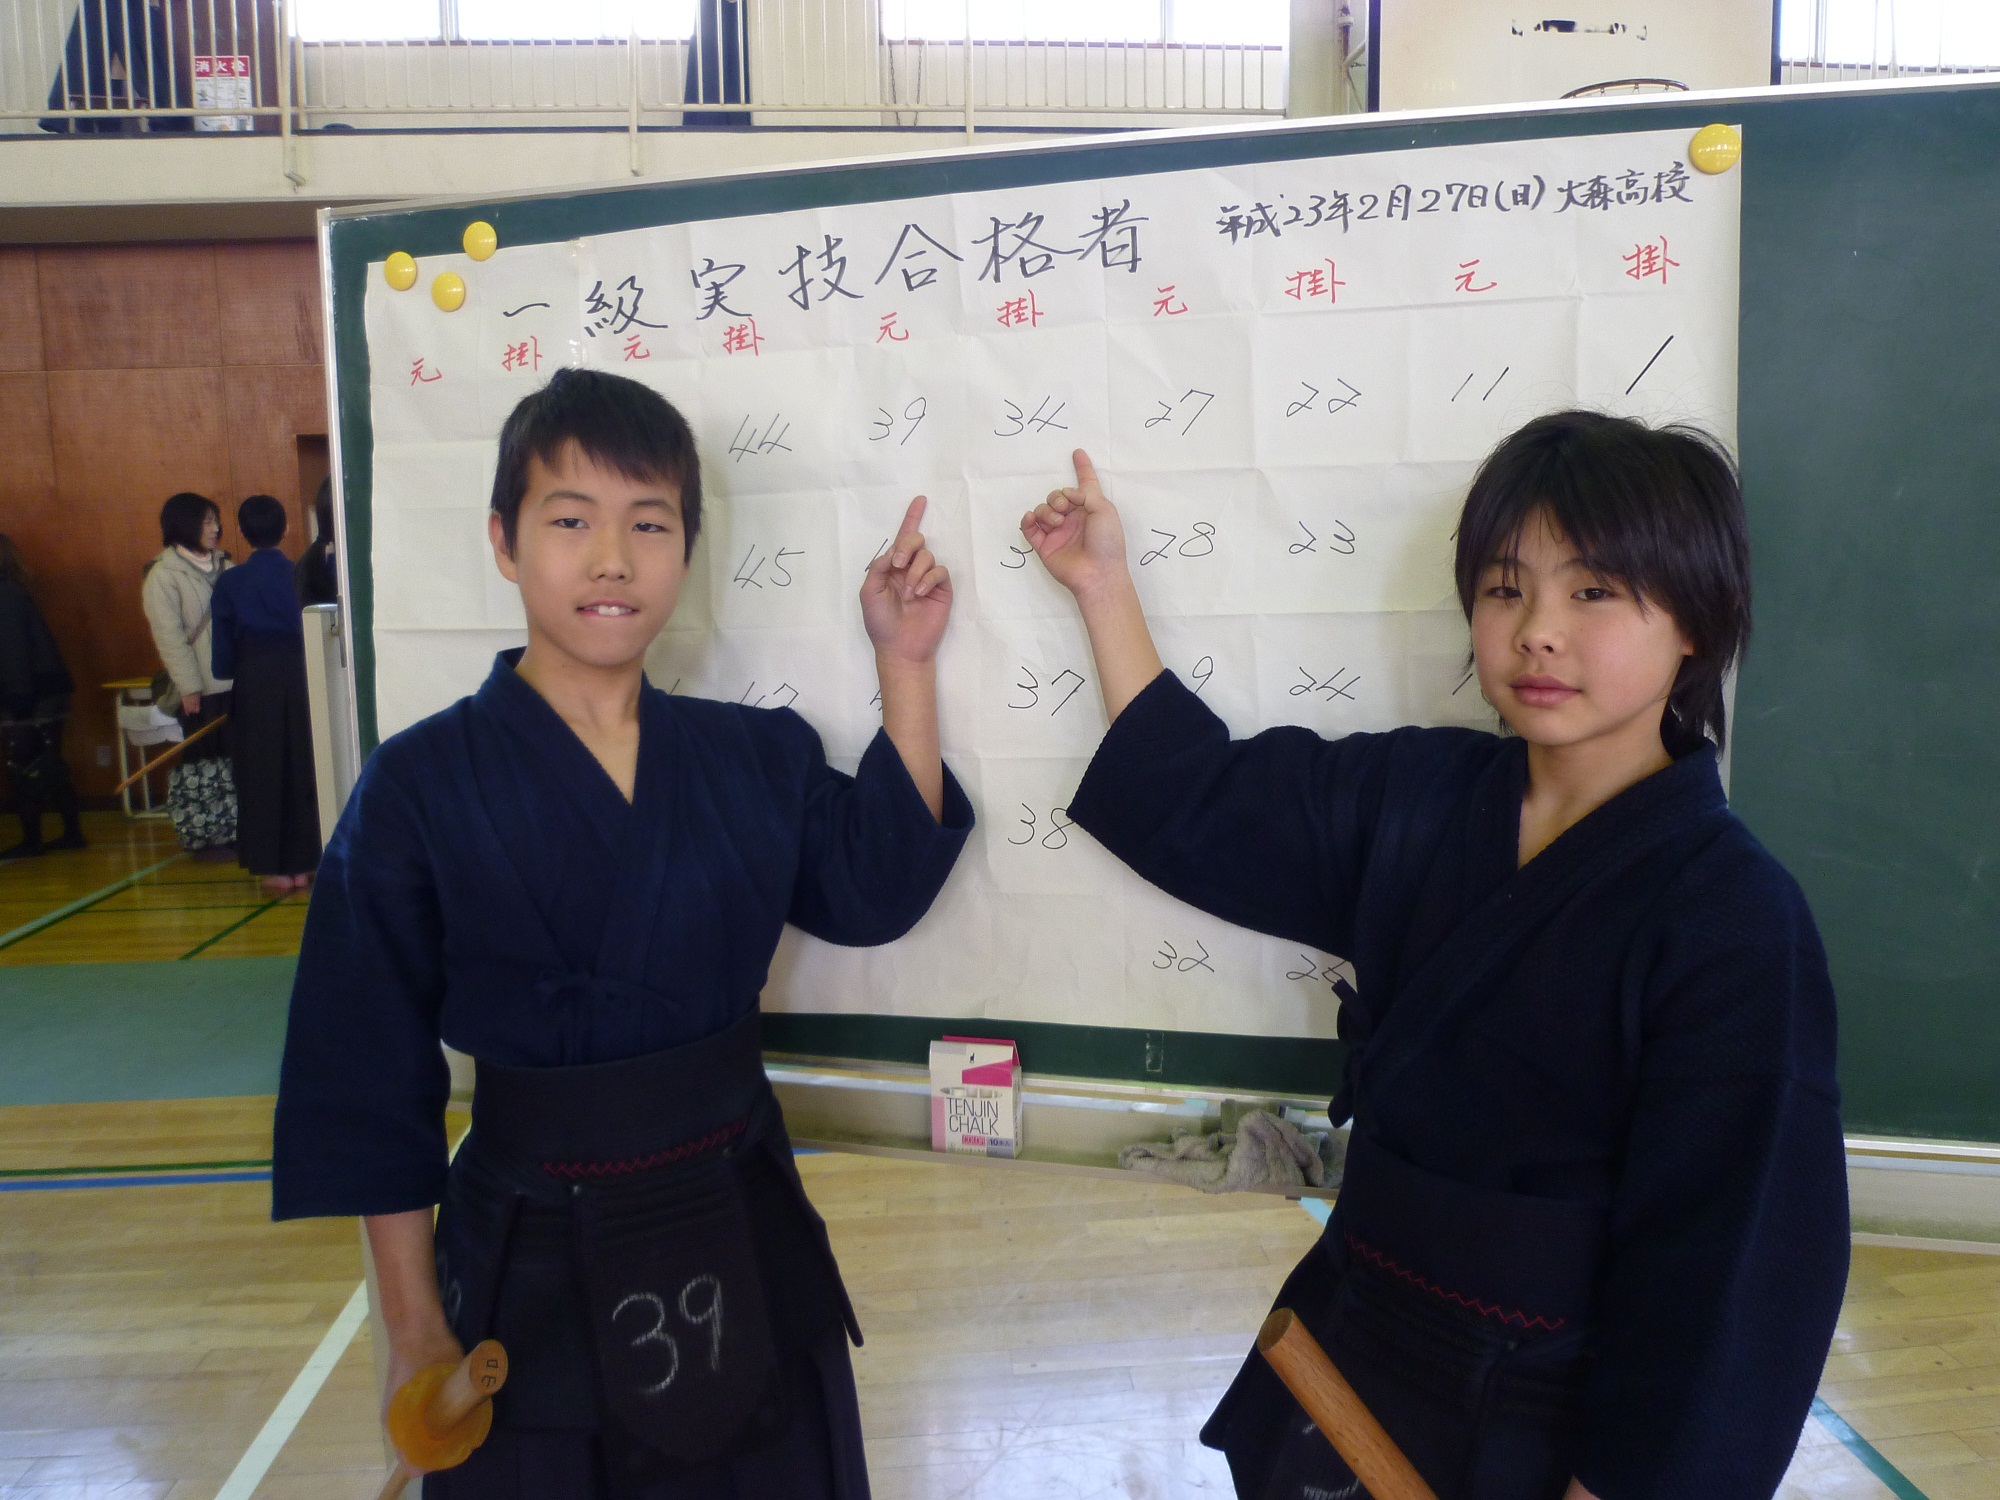 消火栓
平成23年2月27日(日) 大森高校
一級実技合格者
元 掛 元 掛 元 掛 元 掛 元 掛
44 39 34 27 22 11 1
45 28 23
37 24
38
32
TENJIN
CHALK
COLOR 10
39